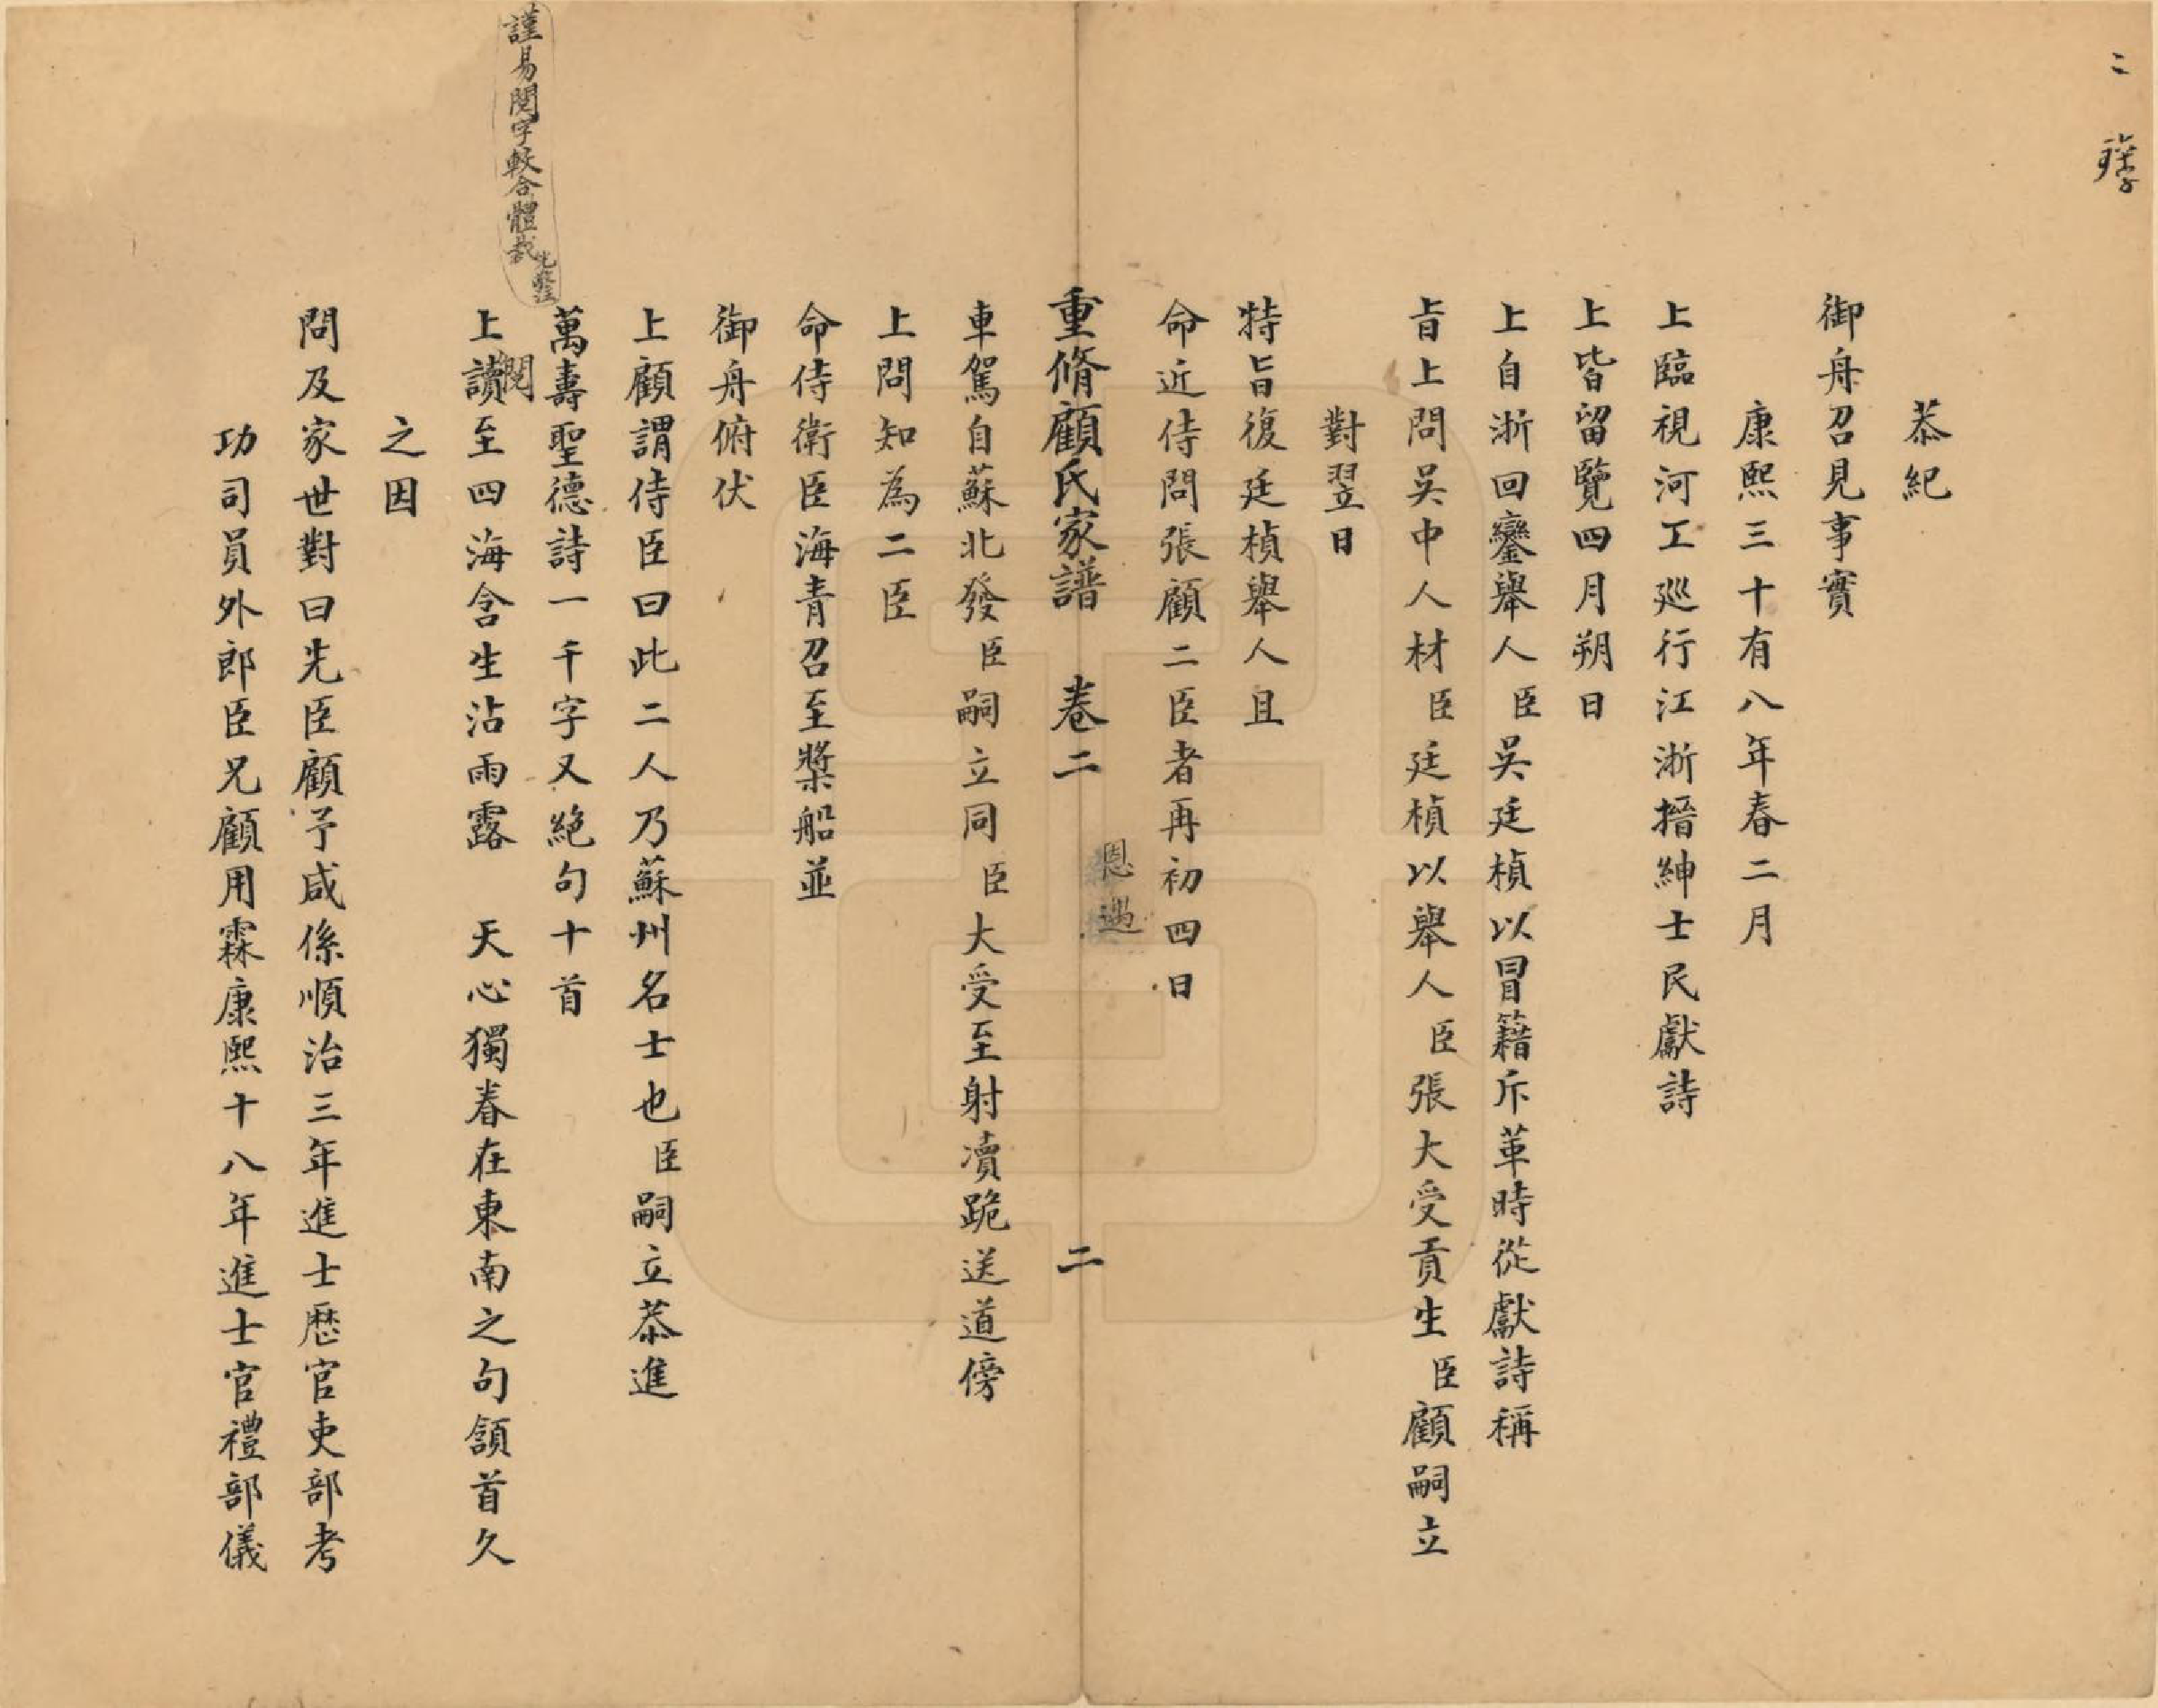 二
恭紀
御舟召見事實
康熙三十有八年春二月
上臨視河工廵行江浙搢紳士民獻詩
上皆留覽四月朔日
上自浙回鑾舉人臣吳廷楨以冒籍斥革時從獻詩稱
旨上問吳中人材臣廷楨以舉人臣張大受貢生臣顧嗣立
對翌日
特旨復廷楨舉人且
命近侍問張顧二臣者再初四日
重脩顧氏家譜 卷二 恩遇 二
車駕自蘇北發臣嗣立同臣大受至射瀆跪送道傍
上問知為二臣
命侍衛臣海青召至槳船並
御舟俯伏
上顧謂侍臣曰此二人乃蘇州名士也臣嗣立恭進
萬壽聖德詩一千字又絶句十首
謹易閱字較合體裁
上讀閱至四海含生沾雨露 天心獨眷在東南之句頷首久
之因
問及家世對曰先臣顧予咸係順治三年進士歷官吏部考
功司員外郎臣兄顧用霖康熙十八年進士官禮部儀